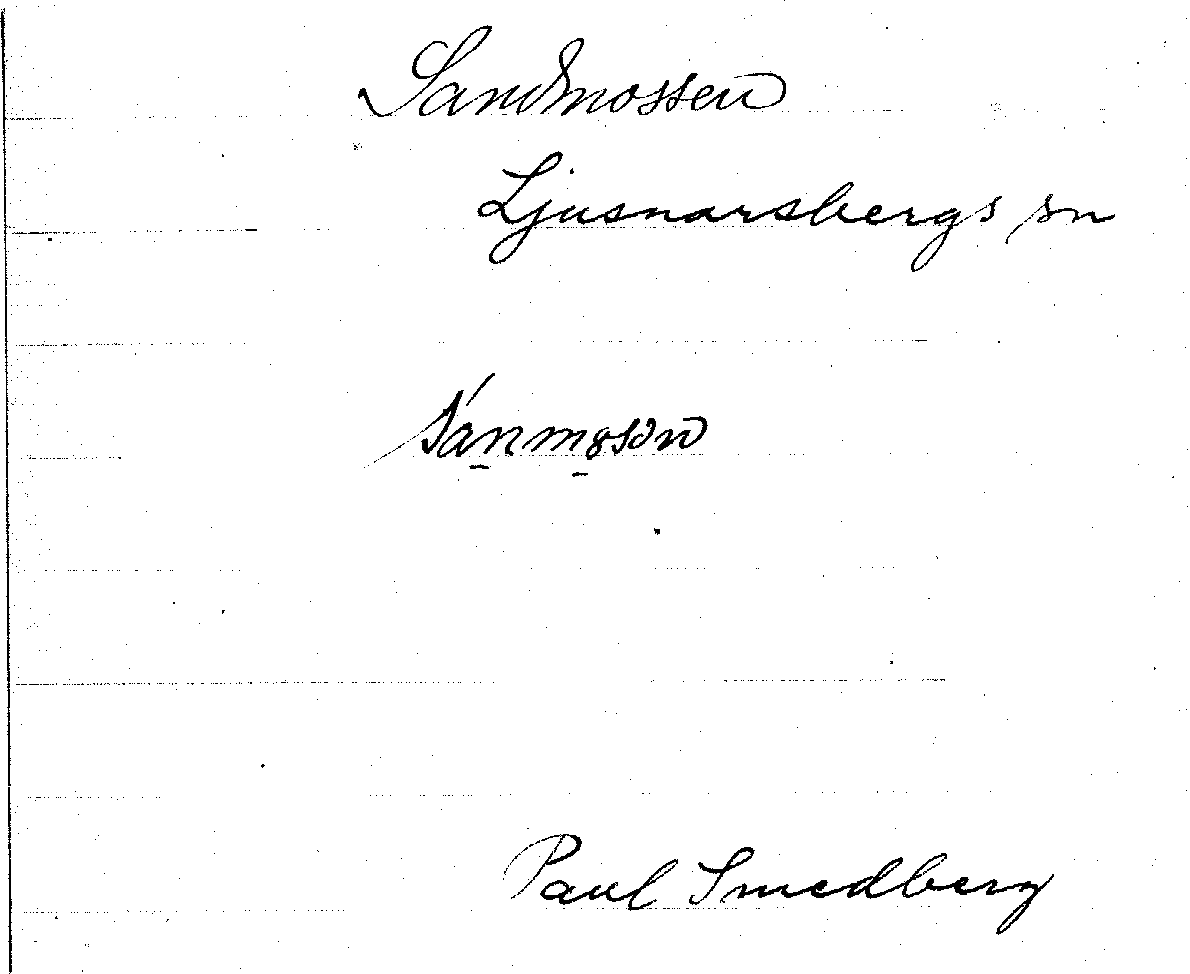 Sandmossen
Ljusnarsbergs sn
Paul Smedberg